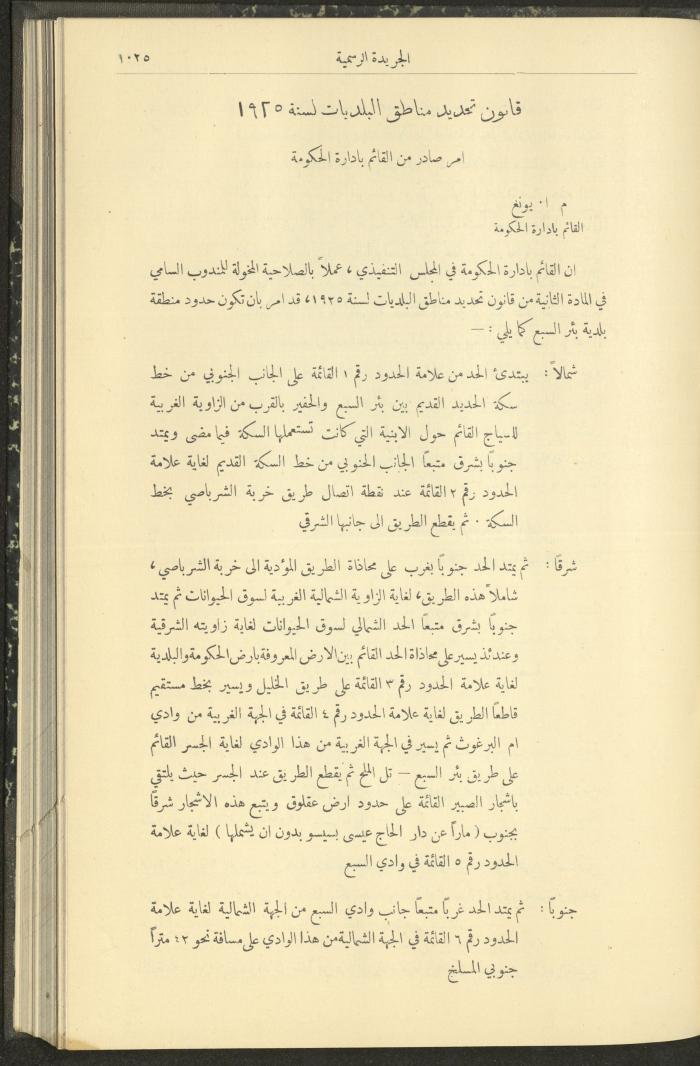 الجريدة الرسمية ١٠٢٥
قانون تحديد مناطق البلديات لسنة ١٩٢٥
امر صادر من القائم بادارة الحكومة
م ا٠ يونغ
القائم بادارة الحكومة
ان القائم بادارة الحكومة في المجلس التنفيذي ، عملاً بالصلاحية المخولة للمندوب السامي
في المادة الثانية من قانون تحديد مناطق البلديات لسنة ١٩٢٥، قد امر بان تكون حدود منطقة
بلدية بئر السبع كما يلي : —
شمالاً : يبتدئ الحد من علامة الحدود رقم ١ القائمة على الجانب الجنوبي من خط
سكة الحديد القديم بين بئر السبع والحفير بالقرب من الزاوية الغربية
للسياج القائم حول الابنية التي كانت تستعملها السكة فيما مضى ويمتد
جنوبًا بشرق متبعًا الجانب الجنوبي من خط السكة القديم لغاية علامة
الحدود رقم ٢ القائمة عند نقطة اتصال طريق خربة الشرباصي بخط
السكة ٠ ثم يقطع الطريق الى جانبها الشرقي
شرقًا : ثم يمتد الحد جنوبًا بغرب على محاذاة الطريق المؤدية الى خربة الشرباصي ،
شاملاً هذه الطريق، لغاية الزاوية الشمالية الغربية لسوق الحيوانات ثم يمتد
جنوبًا بشرق متبعًا الحد الشمالي لسوق الحيوانات لغاية زاويته الشرقية
وعندئذ يسير على محاذاة الحد القائم بين الارض المعروفة بارض الحكومة والبلدية
لغاية علامة الحدود رقم ٣ القائمة على طريق الخليل ويسير بخط مستقيم
قاطعًا الطريق لغاية علامة الحدود رقم ٤ القائمة في الجهة الغربية من وادي
ام البرغوث ثم يسير في الجهة الغربية من هذا الوادي لغاية الجسر القائم
على طريق بئر السبع — تل الملح ثم يقطع الطريق عند الجسر حيث يلتقي
باشجار الصبير القائمة على حدود ارض عقلوق ويتبع هذه الاشجار شرقًا
بجنوب ( ماراً عن دار الحاج عيسى بسيسو بدون ان يشملها ) لغاية علامة
الحدود رقم ٥ القائمة في وادي السبع
جنوبًا : ثم يمتد الحد غربًا متبعًا جانب وادي السبع من الجهة الشمالية لغاية علامة
الحدود رقم ٦ القائمة في الجهة الشمالية من هذا الوادي على مسافة نحو ٤٢ متراً
جنوبي المسلخ